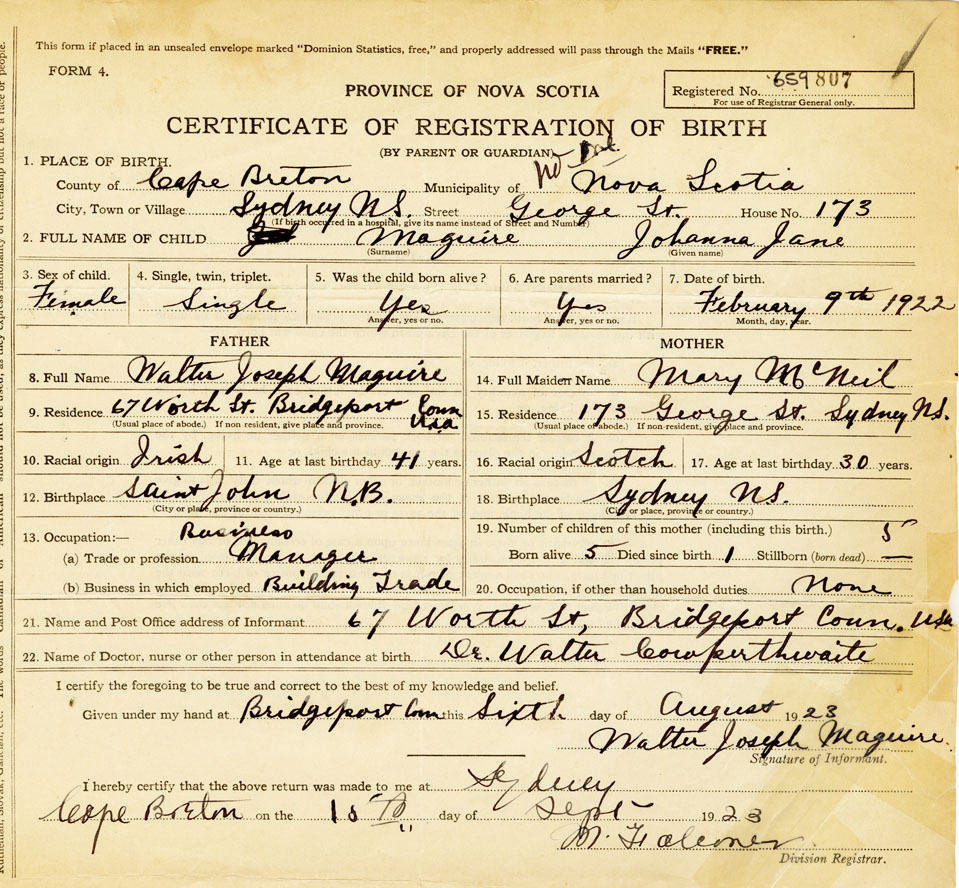 This form if placed in an unsealed envelope marked "Dominion Statistics, free," and properly addressed will pass through the Mails "FREE."
FORM 4.
PROVINCE OF NOVA SCOTIA
Registered No. 659807
For use of Registrar General only.
CERTIFICATE OF REGISTRATION OF BIRTH
(BY PARENT OR GUARDIAN)
1. PLACE OF BIRTH.
County of Cape Breton Municipality of Nova Scotia
City, Town or Village Sydney N.S. Street George St. House No. 173
(If birth occurred in a hospital, give its name instead of Street and Number)
2. FULL NAME OF CHILD Maguire Johanna Jane
(Surname) (Given name)
3. Sex of child. 4. Single, twin, triplet. 5. Was the child born alive? 6. Are parents married? 7. Date of birth.
Female Single Yes Yes February 9th 1922
Answer, yes or no. Answer, yes or no. Month, day, year.
FATHER MOTHER
8. Full Name Walter Joseph Maguire
9. Residence 67 Worth St. Bridgeport Conn USA
(Usual place of abode.) If non resident, give place and province.
10. Racial origin Irish 11. Age at last birthday 41 years.
12. Birthplace Saint John N.B.
(City or place, province or country.)
13. Occupation:— Business
(a) Trade or profession Manager
(b) Business in which employed Building Trade
14. Full Maiden Name Mary McNeil
15. Residence 173 George St. Sydney N.S.
(Usual place of abode.) If non-resident, give place and province.
16. Racial origin Scotch 17. Age at last birthday 30 years.
18. Birthplace Sydney N.S.
(City or place, province or country.)
19. Number of children of this mother (including this birth.) 5
Born alive 5 Died since birth 1 Stillborn (born dead) —
20. Occupation, if other than household duties None
21. Name and Post Office address of Informant 67 Worth St, Bridgeport Conn. USA
22. Name of Doctor, nurse or other person in attendance at birth Dr. Walter Cowperthwaite
I certify the foregoing to be true and correct to the best of my knowledge and belief.
Given under my hand at Bridgeport Conn this Sixth day of August 1923
Walter Joseph Maguire.
Signature of Informant.
I hereby certify that the above return was made to me at Sydney
Cape Breton on the day of Sept 1923
M. Falconer
Division Registrar.